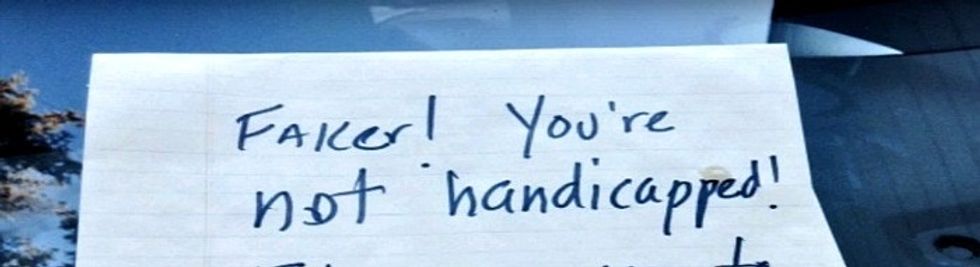 FAKer! You're
not handicapped!